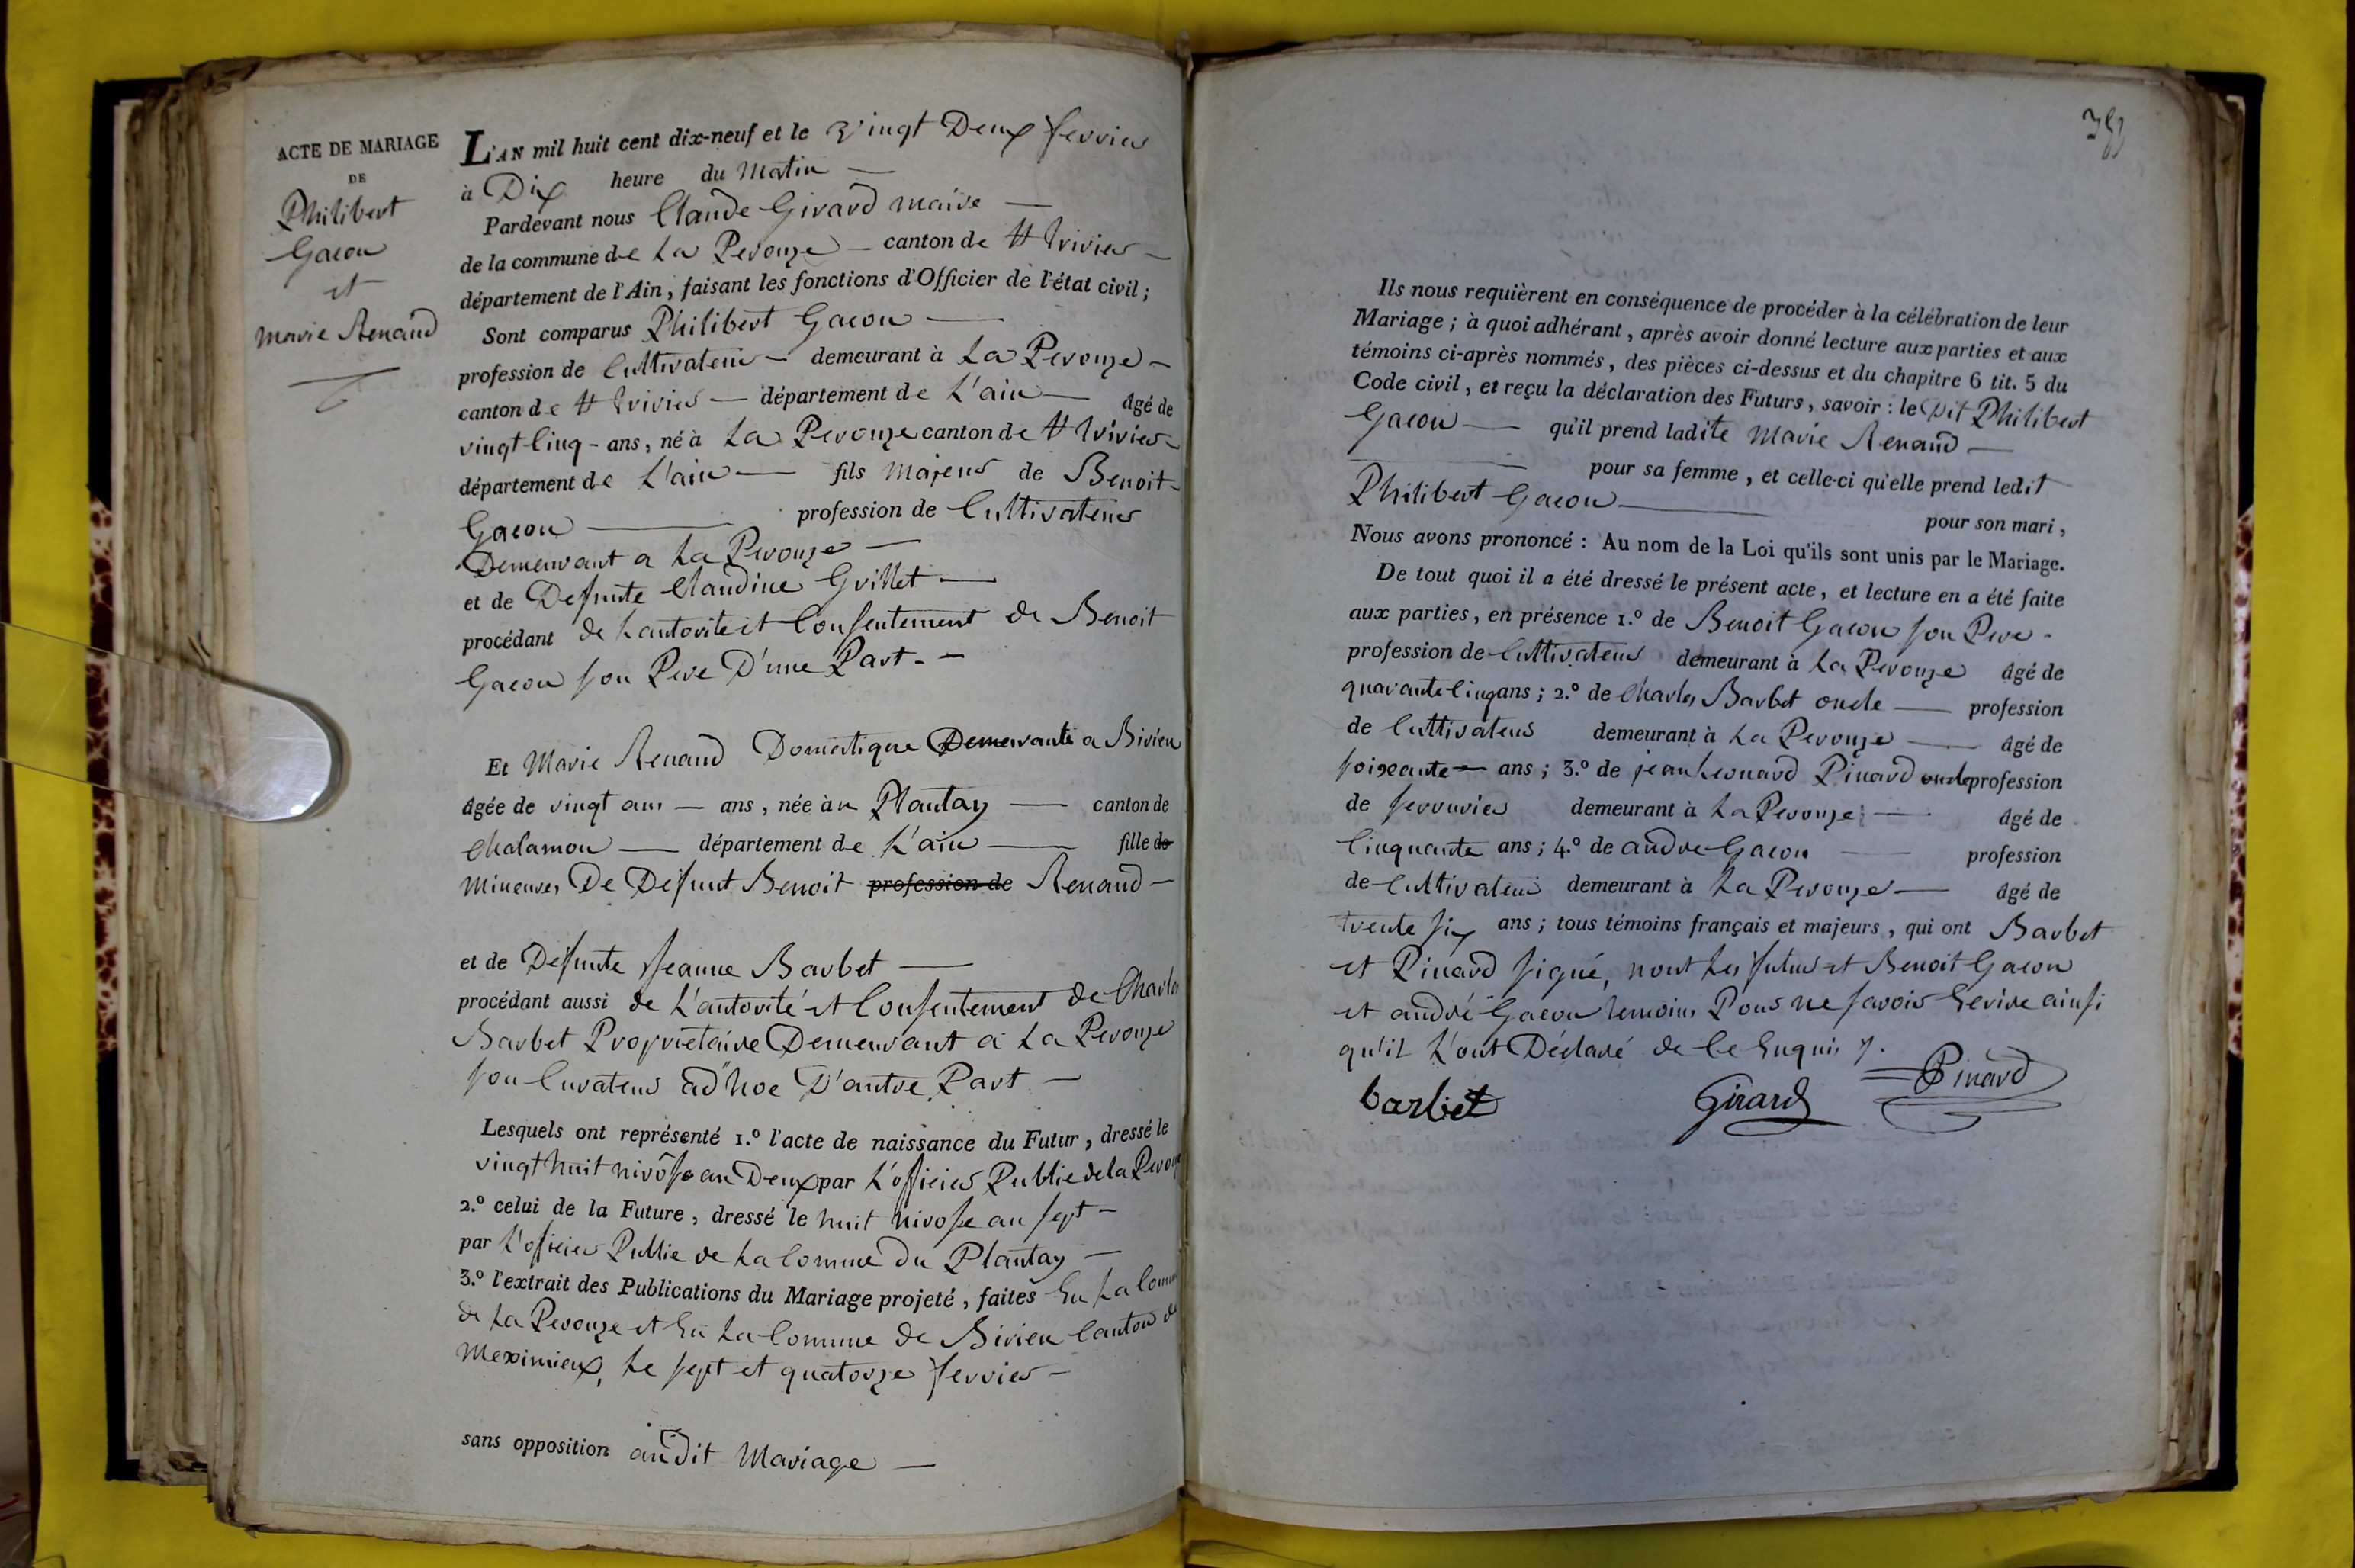 ACTE DE MARIAGE
DE
Philibert
Gacon
et
Marie Renaud
L'AN mil huit cent dix-neuf et le vingt Deux fevrier
à Dix heure du Matin
Pardevant nous Claude Girard maire
de la commune de La Perouze canton de St trivier
département de l'Ain, faisant les fonctions d'Officier de l'état civil;
Sont comparus Philibert Gacon
profession de Cultivateur demeurant à La Perouze
canton de St trivier département de L'ain âgé de
vingt Cinq ans, né à La Perouze canton de St trivier
département de L'ain fils majeur de Benoit
Gacon profession de Cultivateur
Demeurant a La Perouze
et de Defunte Claudine Grillet
procédant de Lautorite et Consentement de Benoit
Gacon son Pere D'une Part
Et Marie Renaud Domestique Demeurante a Birieu
âgée de vingt ans ans, née àu Plantay canton de
Chalamon département de L'ain fille de
mineure, De Défunt Benoit profession de Renaud
et de Defunte Jeanne Barbet
procédant aussi de L'autorité et Consentement de Charles
Barbet Propriétaire Demeurant a La Perouze
son Curateur ad'hoc D'autre Part
Lesquels ont représenté 1.º l'acte de naissance du Futur, dressé le
vingt huit nivôse an Deux par L'officier Public de la Perouze
2.º celui de la Future, dressé le huit nivose an sept
par L'oficier Public de La Comune Du Plantay
3.º l'extrait des Publications du Mariage projeté, faites En La Comune
de La Perouze et En La Comune de Birieu Canton de
Meximieux, Le sept et quatorze fevrier
sans opposition audit Mariage
Ils nous requièrent en conséquence de procéder à la célébration de leur
Mariage; à quoi adhérant, après avoir donné lecture aux parties et aux
témoins ci-après nommés, des pièces ci-dessus et du chapitre 6 tit. 5 du
Code civil, et reçu la déclaration des Futurs, savoir: le Dit Philibert
Gacon qu'il prend ladite Marie Renaud
pour sa femme, et celle-ci qu'elle prend ledit
Philibert Gacon pour son mari,
Nous avons prononcé: Au nom de la Loi qu'ils sont unis par le Mariage.
De tout quoi il a été dressé le présent acte, et lecture en a été faite
aux parties, en présence 1.º de Benoit Gacon son Pere
profession de Cultivateur demeurant à La Perouze âgé de
quarante Cinq ans; 2.º de Charles Barbet oncle profession
de Cultivateur demeurant à La Perouze âgé de
soixante ans; 3.º de jean Leonard Pinard oncle profession
de serrurier demeurant à La Perouze âgé de
Cinquante ans; 4.º de andre Gacon profession
de Cultivateur demeurant à La Perouze âgé de
trente six ans; tous témoins français et majeurs, qui ont Barbet
et Pinard signé, nont Les futurs et Benoit Gacon
et andré Gacon temoins Pour ne savoir Ecrire ainsi
qu'il L'ont Déclaré de Ce Enquis
barbet Girard Pinard